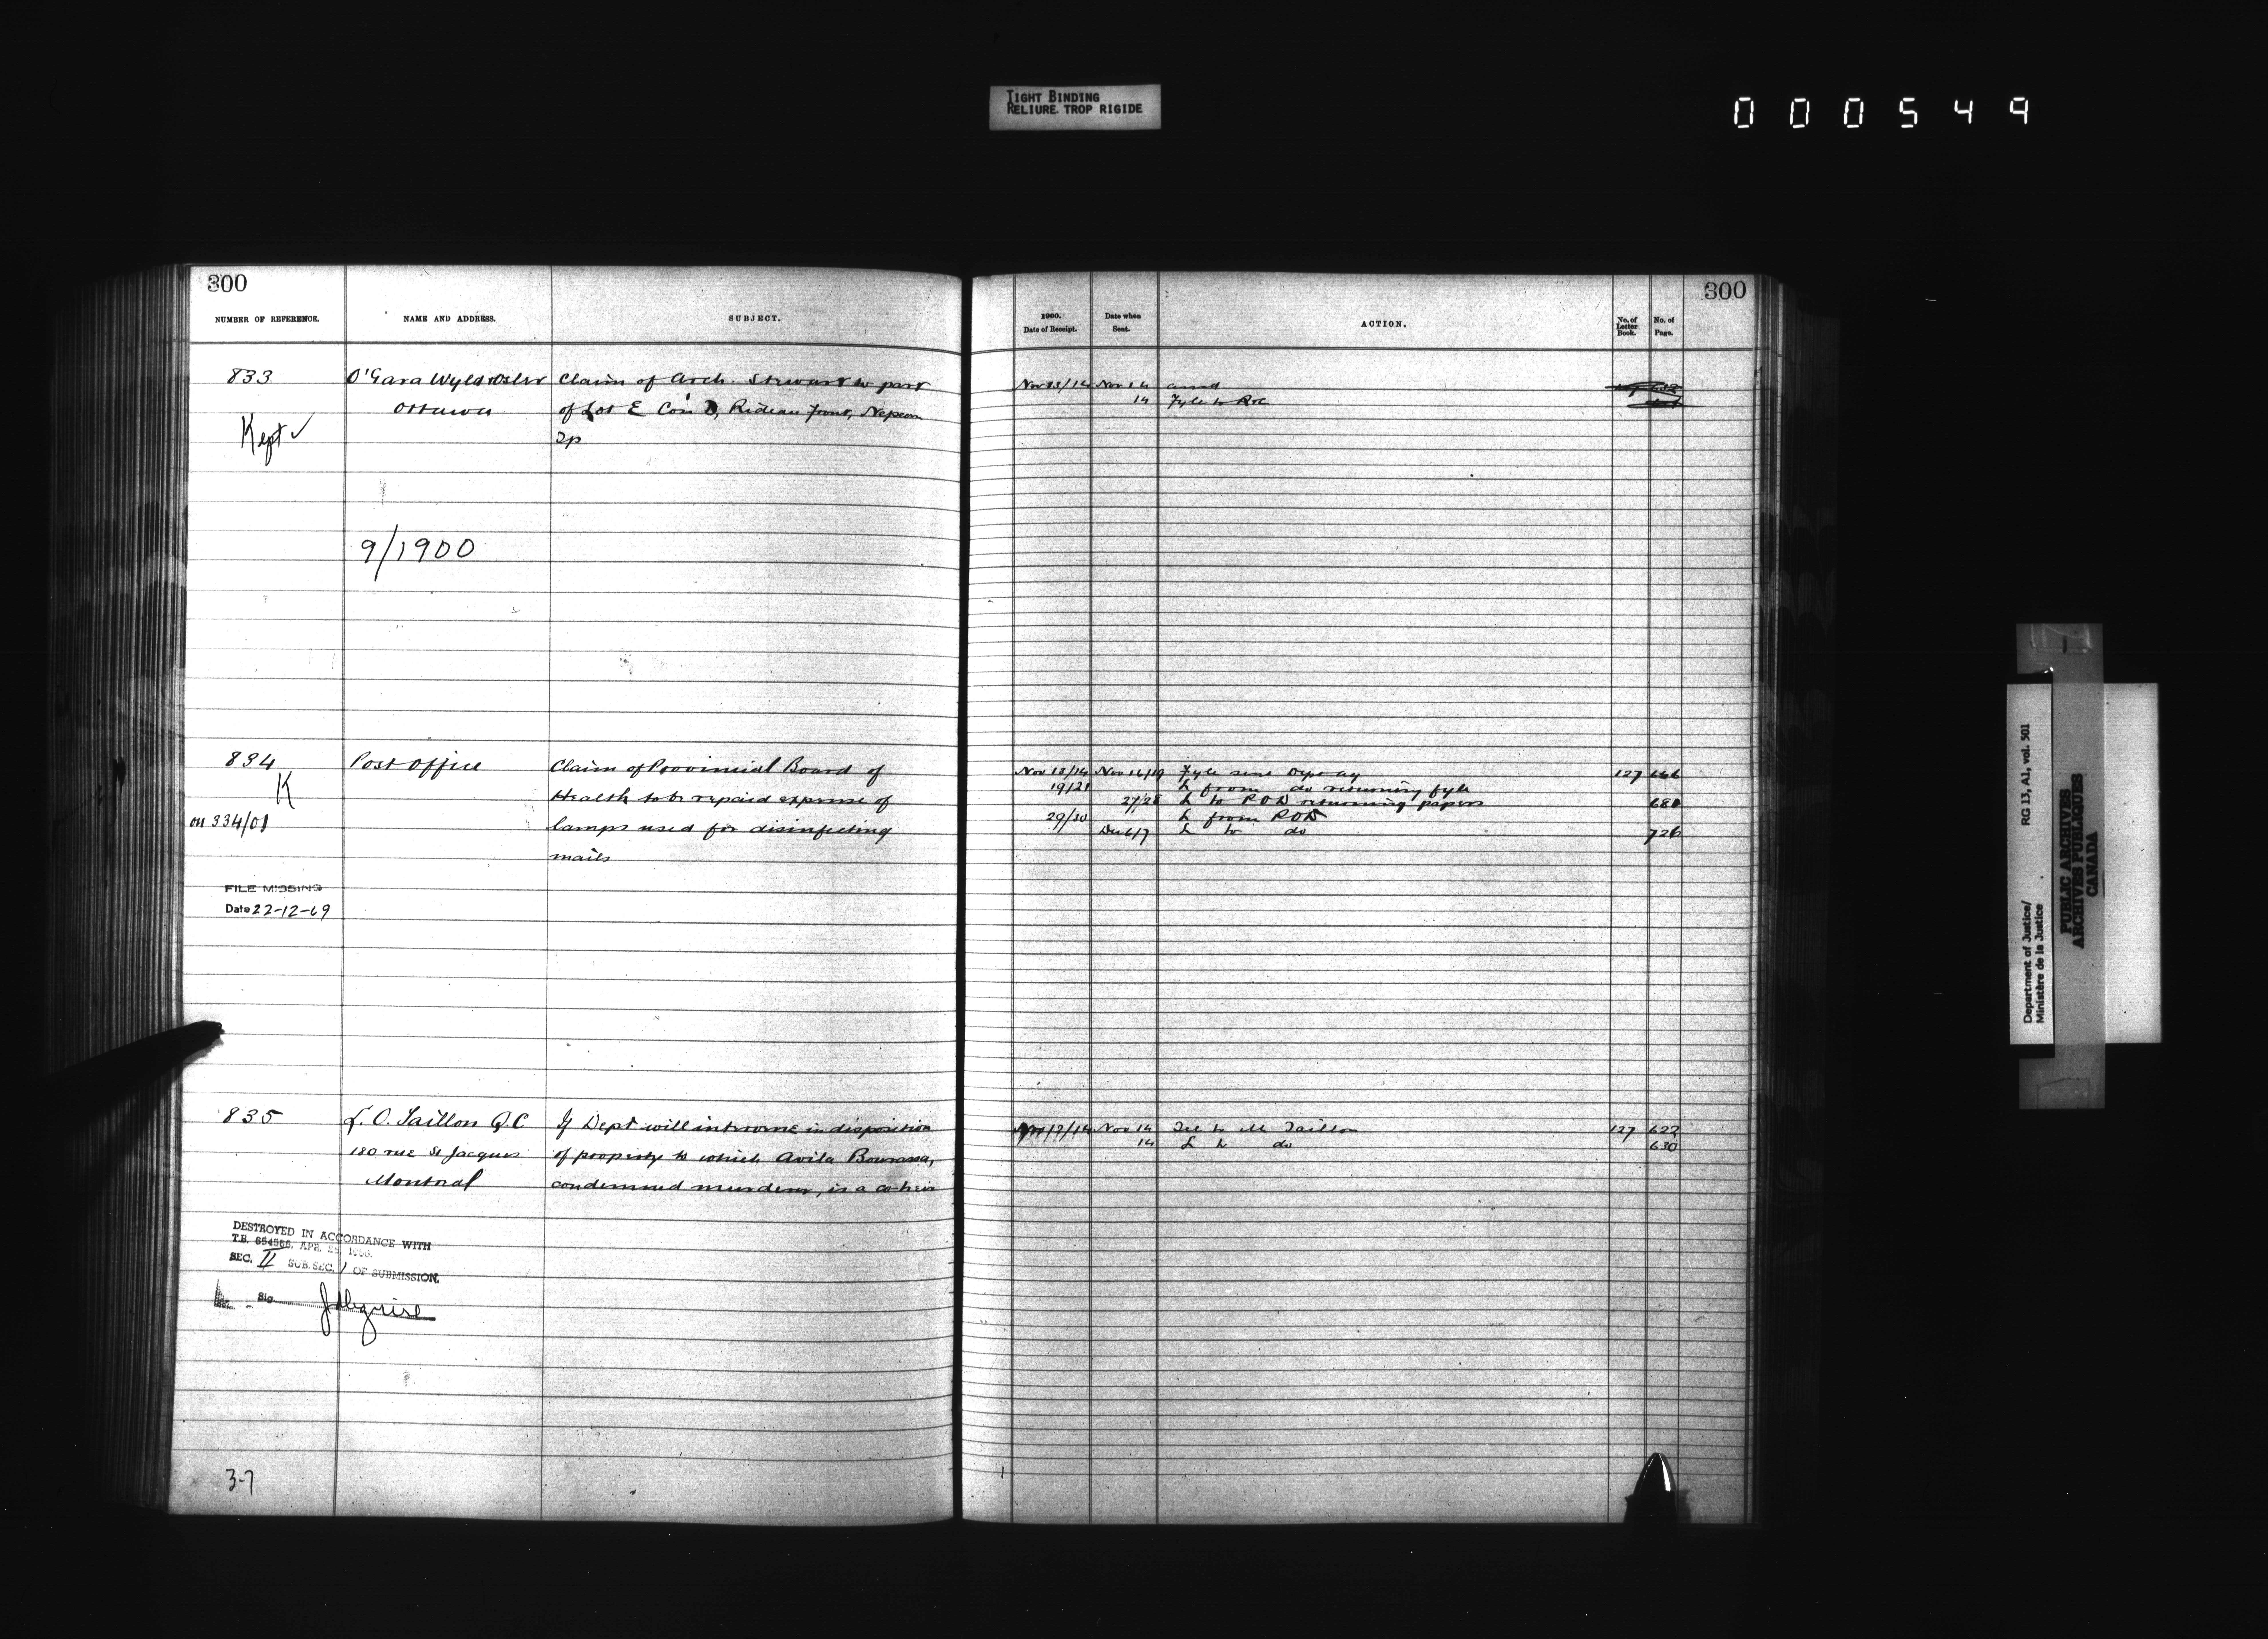 TIGHT BINDING
RELIURE TROP RIGIDE
000549
300
NUMBER OF REFERENCE.
NAME AND ADDRESS.
SUBJECT.
833
O'Gara Wyld & Osler
Claim of Arch. Stewart to part
Ottawa
of Lot E Con D, Rideau front, Nepean
Kept ✓
Tp
9/1900
834
Post Office
Claim of Provincial Board of
K
Health to be repaid expense of
on 334/01
lamps used for disinfecting
mails
FILE MISSING
Date 22-12-69
835
L. O. Taillon Q.C
If Dept will intervene in disposition
180 rue St Jacques
of property to which Avila Bourassa,
Montreal
condemned murderer, is a co-heir
DESTROYED IN ACCORDANCE WITH
T.B. 654566, APR.
SEC. II SUB. SEC. 1 OF SUBMISSION.
Sig.
3-7
300
1900.
Date of Receipt.
Date when
Sent.
ACTION.
No. of
Letter
Book.
No. of
Page.
Nov 13/14 Nov 14
14 Fyle to
Nov 13/14 Nov 16/19 Fyle 127 646
19/21 L from do returning fyle
27/28 L to POD returning papers 688
29/30 L from POD
Dec 6/7 L to do 726
Nov 12/14 Nov 14 Tel to M Taillon 127 622
14 L to do 630
Department of Justice/
Ministère de la Justice
RG 13, A1, vol. 501
PUBLIC ARCHIVES
ARCHIVES PUBLIQUES
CANADA